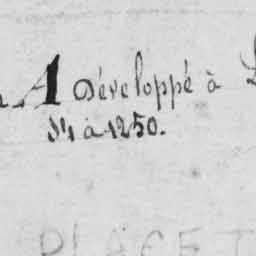 A Développé à
à 1250.
PLACET